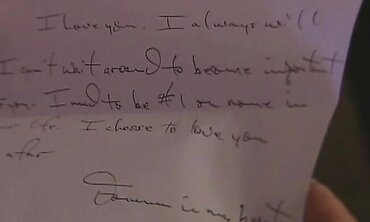 I love you. I always will
I can't wait around to become important
I need to be #1 or none in
life. I choose to love you
afar.
in my heart